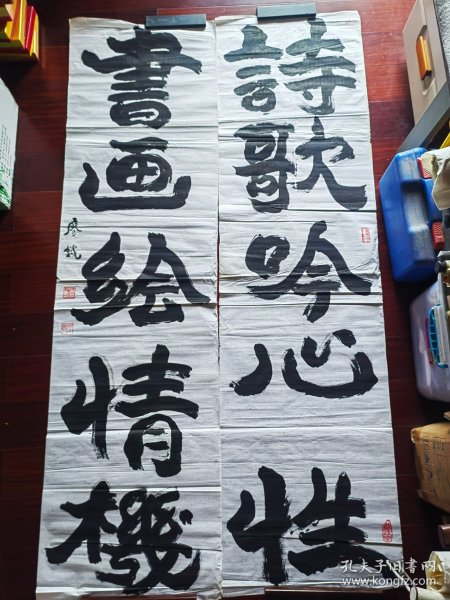 詩歌吟心性
書画绘情機
廖铁
孔夫子旧书网
www.kongfz.com